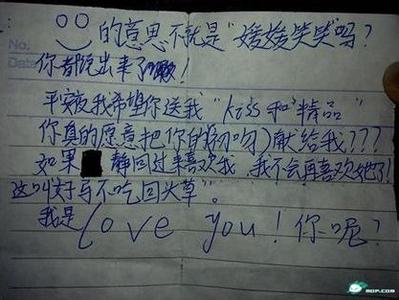 No.
Date
的意思不就是“媛媛笑笑”吗?
你都说出来了噢!
平安夜我希望你送我“kiss和“精品”
你真的愿意把你的初吻)献给我???
如果 静回过来喜欢我,我不会再喜欢她了!
这叫好马不吃回头草”。
我是love you!你呢?
MOP.COM